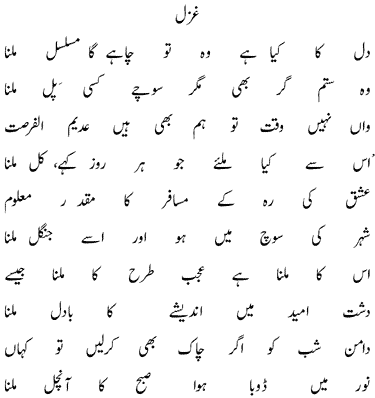 غزل
دل کا کیا ہے وہ تو چاہے گا مسلسل ملنا
وہ ستم گر بھی مگر سوچے کسی پَل ملنا
واں نہیں وقت تو ہم بھی ہیں عدیم الفرصت
اُس سے کیا ملئے جو ہر روز کہے، کل ملنا
عشق کی رہ کے مسافر کا مقدر معلوم
شہر کی سوچ میں ہو اور اسے جنگل ملنا
اس کا ملنا ہے عجب طرح کا ملنا جیسے
دشت امید میں اندیشے کا بادل ملنا
دامن شب کو اگر چاک بھی کرلیں تو کہاں
نور میں ڈوبا ہوا صبح کا آنچل ملنا